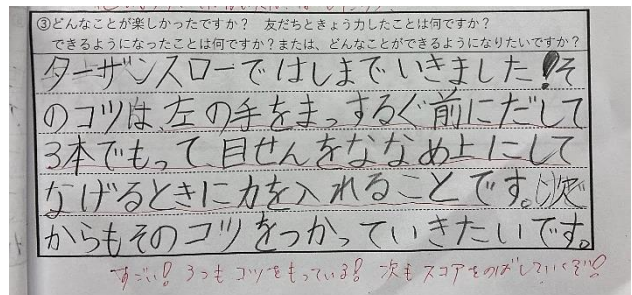 ③どんなことが楽しかったですか？　友だちときょう力したことは何ですか？
できるようになったことは何ですか？または、どんなことができるようになりたいですか？
ターザンスローではしまでいきました！そ
のコツは、左の手をまっするぐ前にだして
3本でもって、目せんをななめ上にして
なげるときに力を入れることです。次
からもそのコツをつかっていきたいです。
すごい！ 3つも コツをもっている！ 次も スコアをのばしていくぞ！